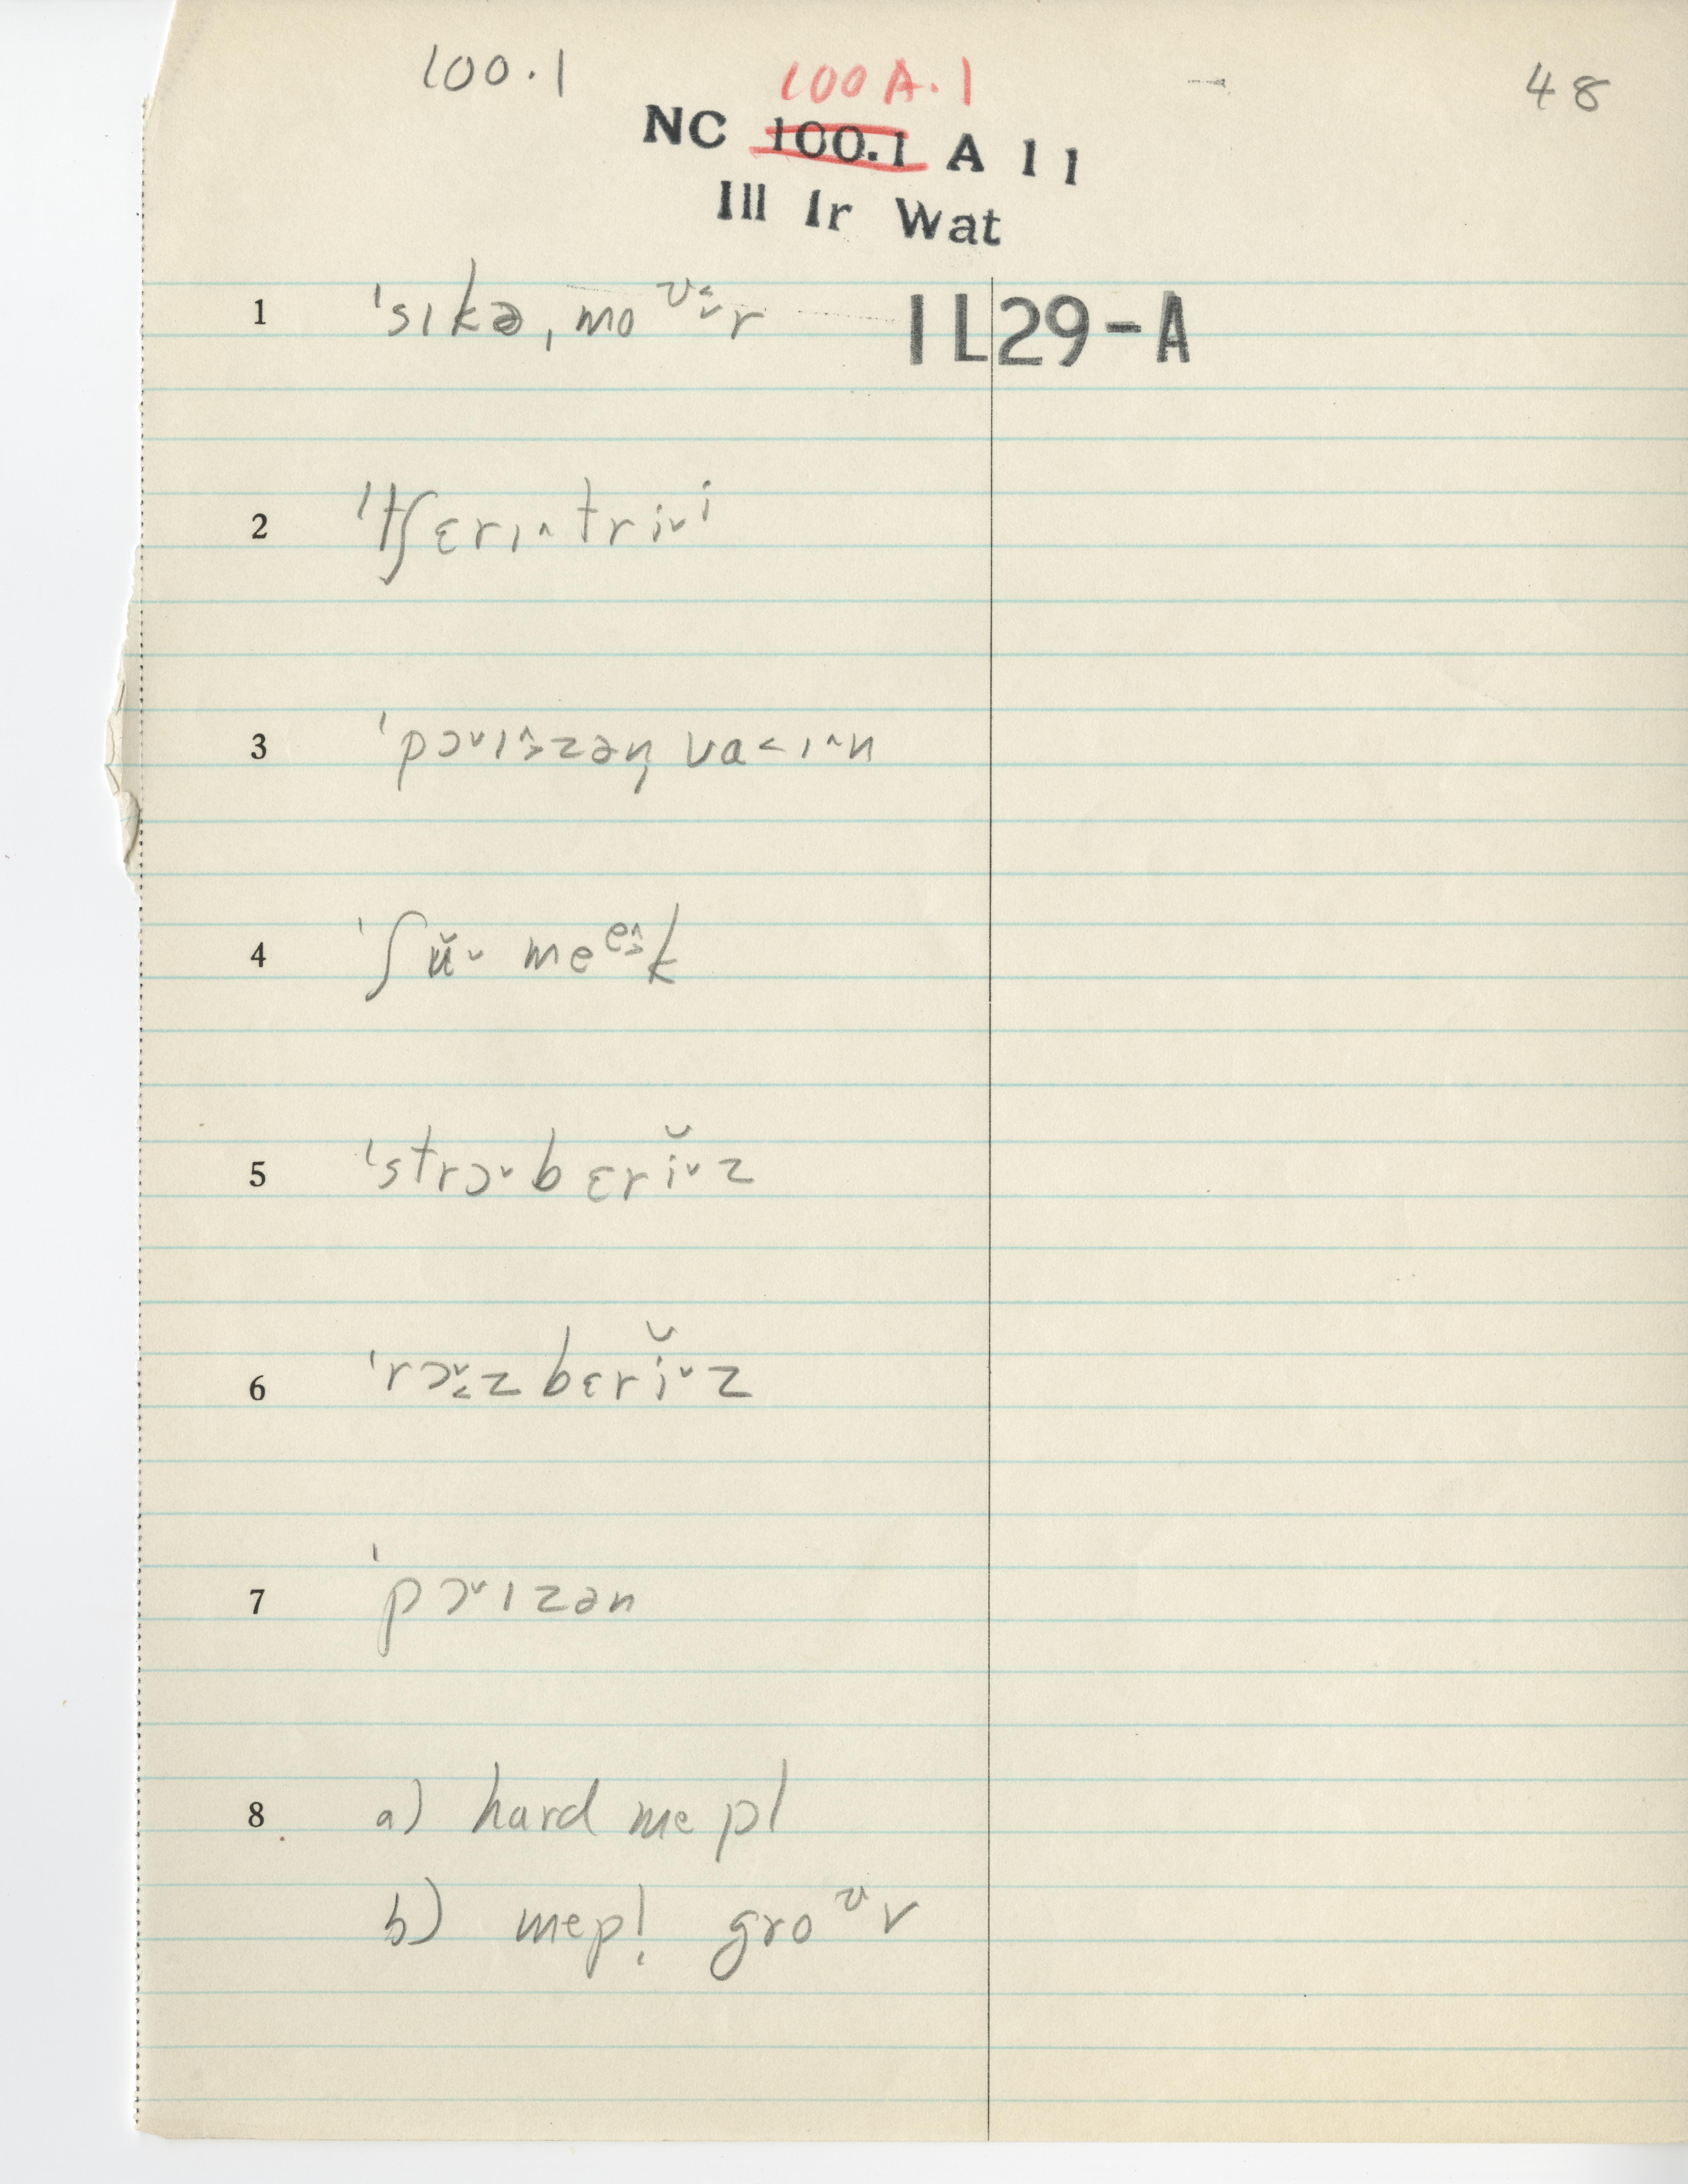 100.1 100A.1 48
NC 100.1 A 11
Ill Ir Wat
1 ˈsɪkəˌmoᶷ˞r IL29-A
2 ˈtʃɛrɪ^triˇⁱ
3 ˈpɔˇɪzəŋ va<ɪ^n
4 ˈʃŭˇ meᵉk
5 ˈstrɔˇbɛrĭˇz
6 ˈrɔˇzbɛrĭˇz
7 ˈpɔˇɪzən
8 a) hard mepl
b) mepl̩ groᶷv